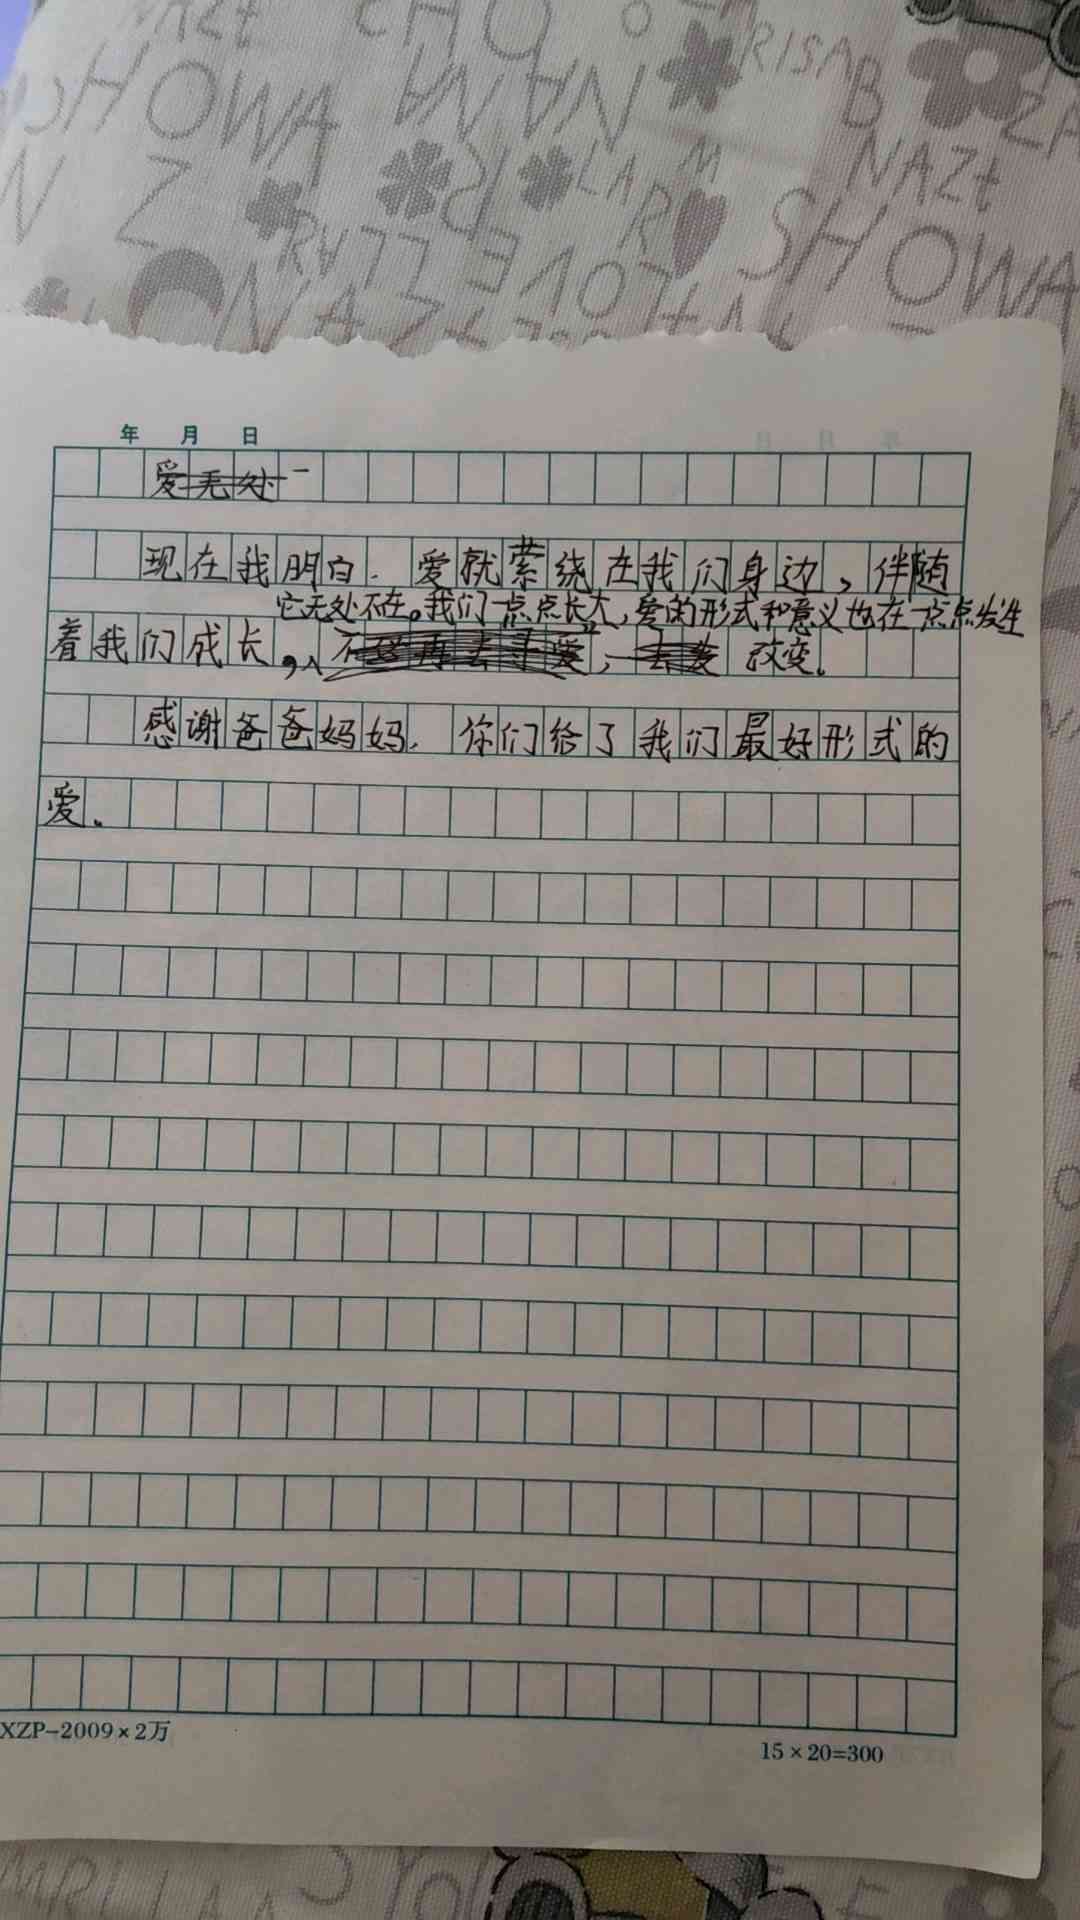 SHOWA
NAZt
RISA
B
NAZt
SHOWA
LOVE
年 月 日
爱无处
现在我明白.爱就萦绕在我们身边,伴随
它无处不在。我们一点点长大,爱的形式和意义也在一点点发生
着我们成长,改变.
感谢爸爸妈妈.你们给了我们最好形式的
爱.
XZP-2009×2万
15×20=300